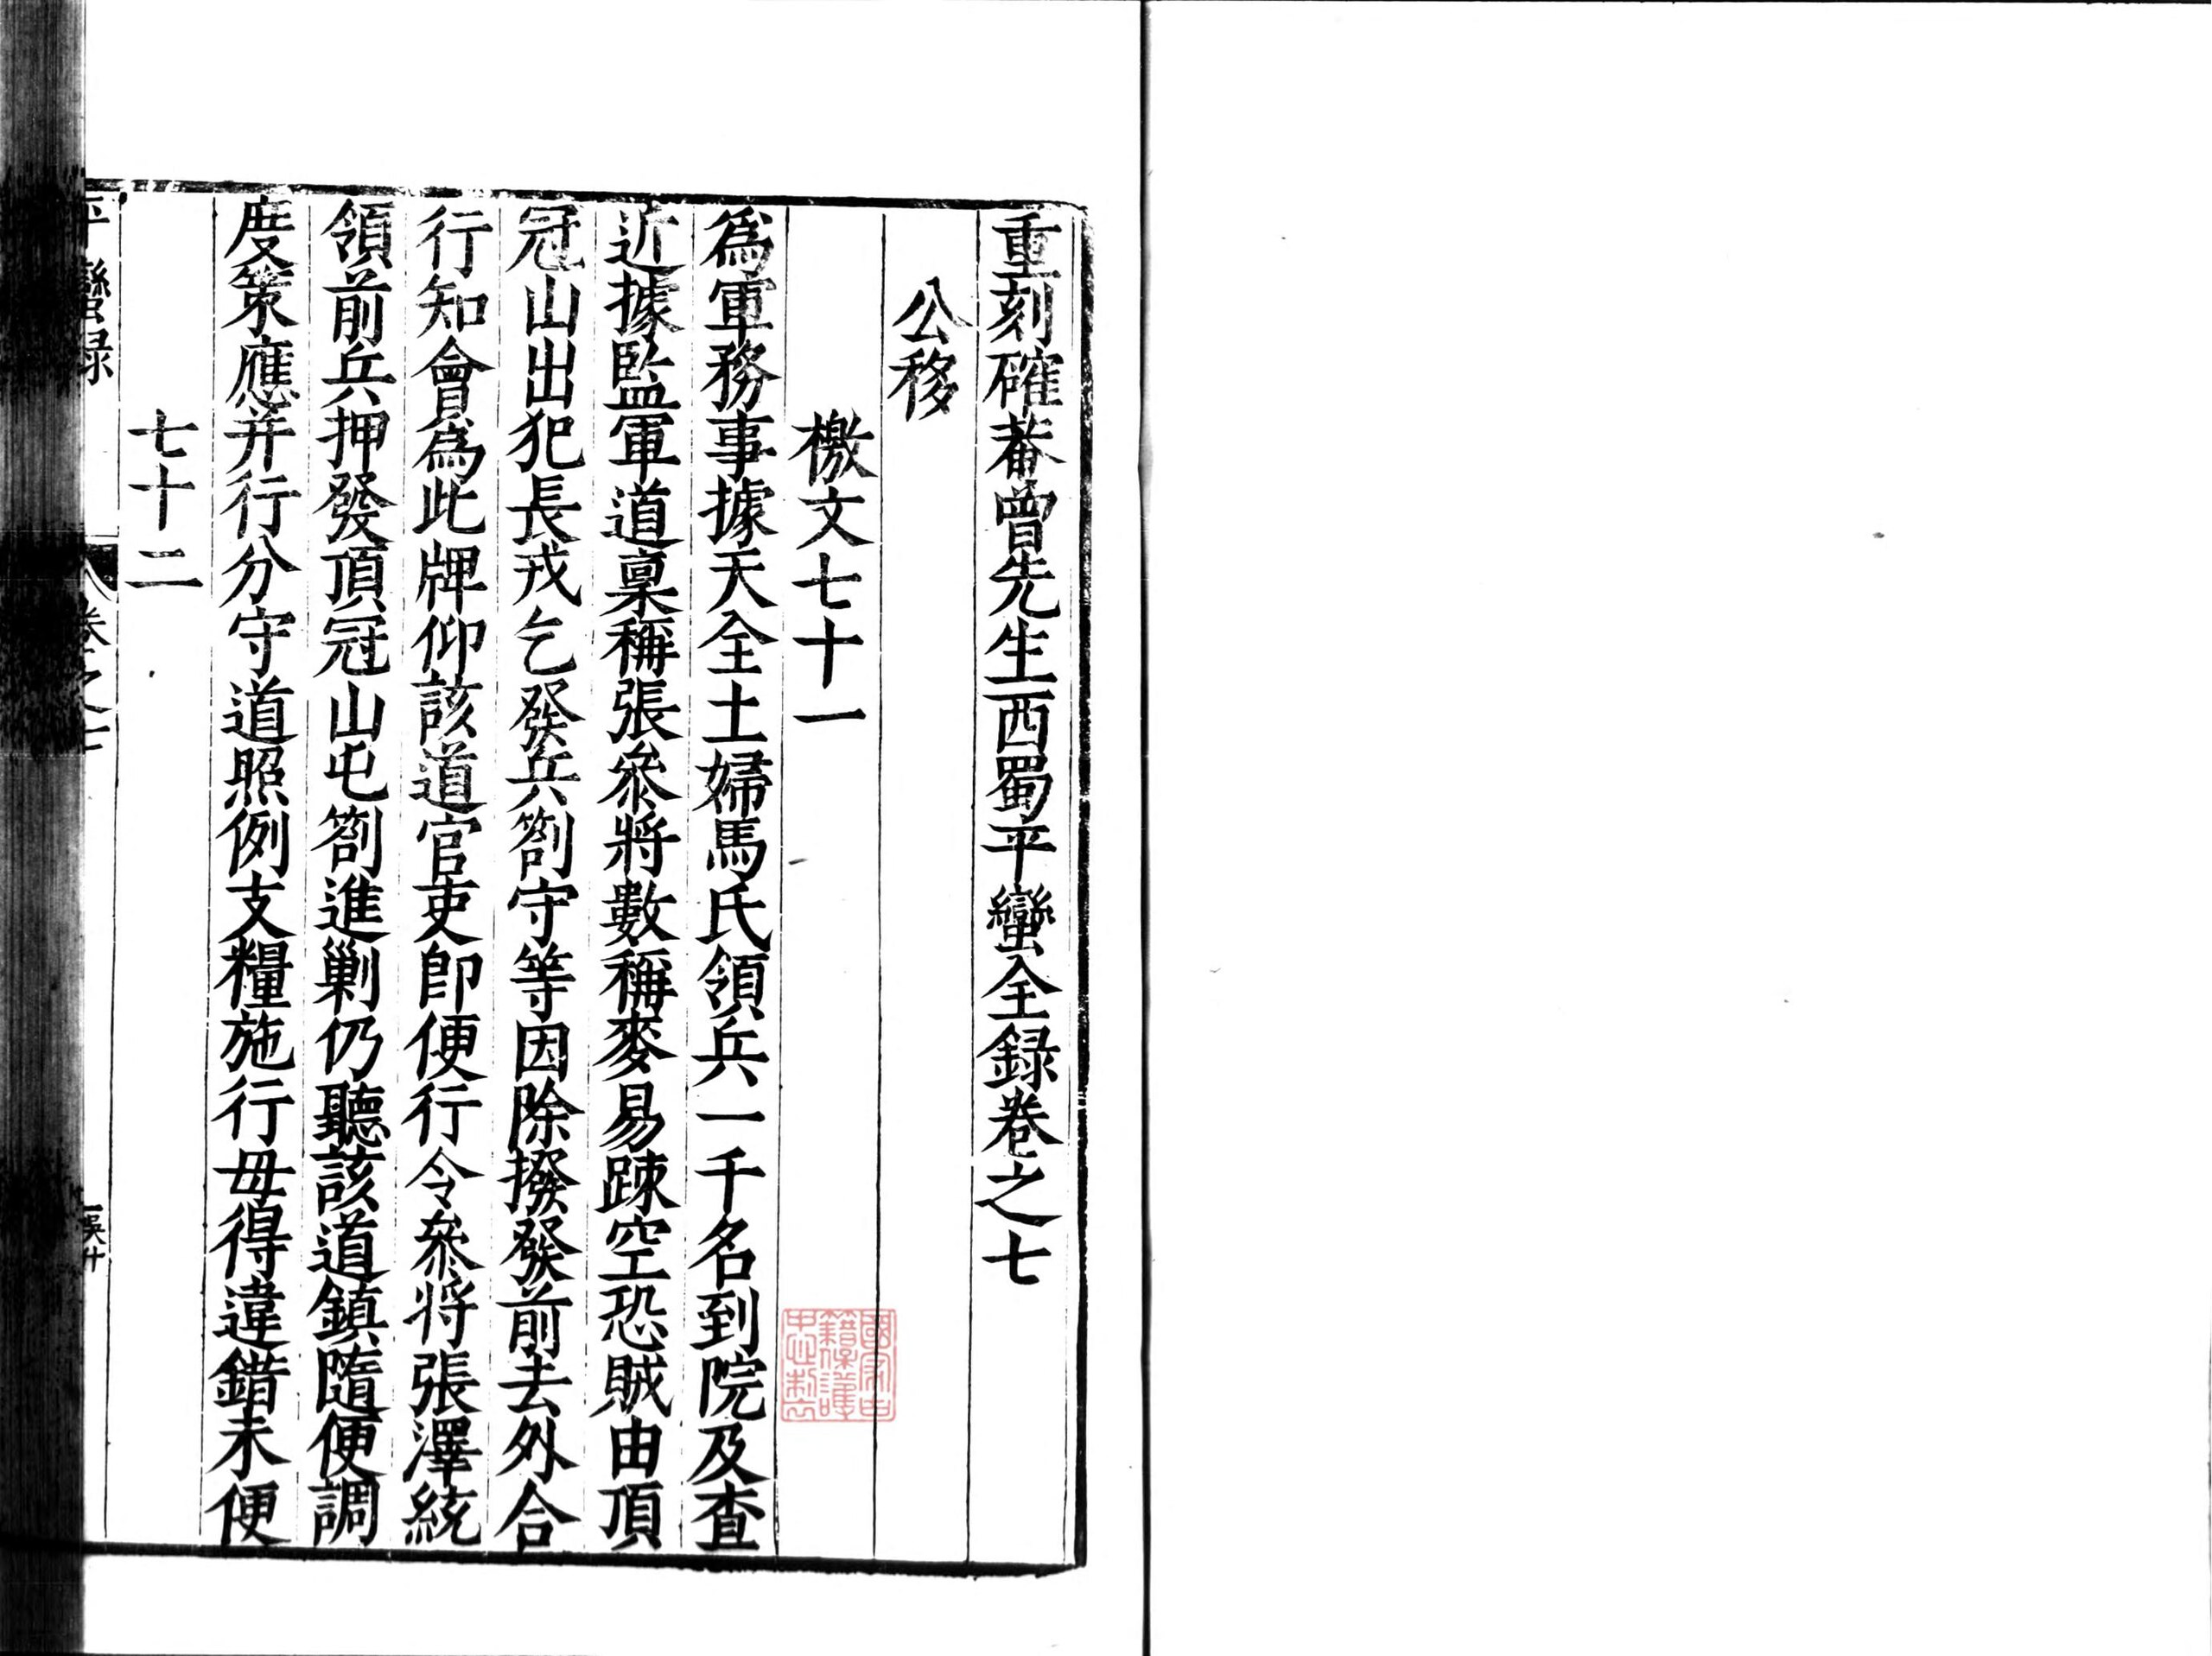 重刻確菴曾先生西蜀平蠻全録卷之七
公移
檄文七十一
為軍務事據天全土婦馬氏領兵一千名到院及查
近據監軍道稟稱張叅將數稱麥易踈空恐賊由頂
冠山出犯長戎乞發兵劄守等因除撥發前去外合
行知會為此牌仰該道官吏即便行令叅將張澤統
領前兵押發頂冠山屯劄進剿仍聽該道鎮隨便調
度策應并行分守道照例支糧施行毋得違錯未便
七十二
平蠻録
卷之七